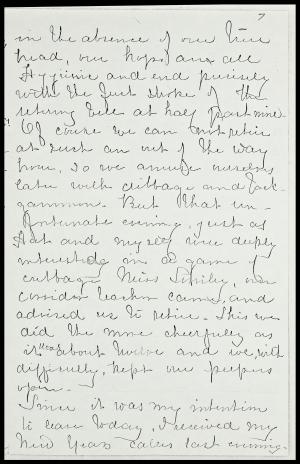 7
in the absence of our true
head, our hops and all
Hygiene and end precisely
with the first stroke of the
retiring bell at half past nine.
Of course we can not retire
at such an out of the way
hour, so we amuse ourselves
later with cribbage and Back-
gammon. But that un-
fortunate evening, just as
and myself were deeply
interested in a game of
cribbage Miss our
corridor teacher came, and
advised us to retire. This we
did the more cheerfully as
it was about twelve and we, with
difficulty, kept our peepers
open.
Since it was my intention
to leave today, I received my
New Years callers last evening.